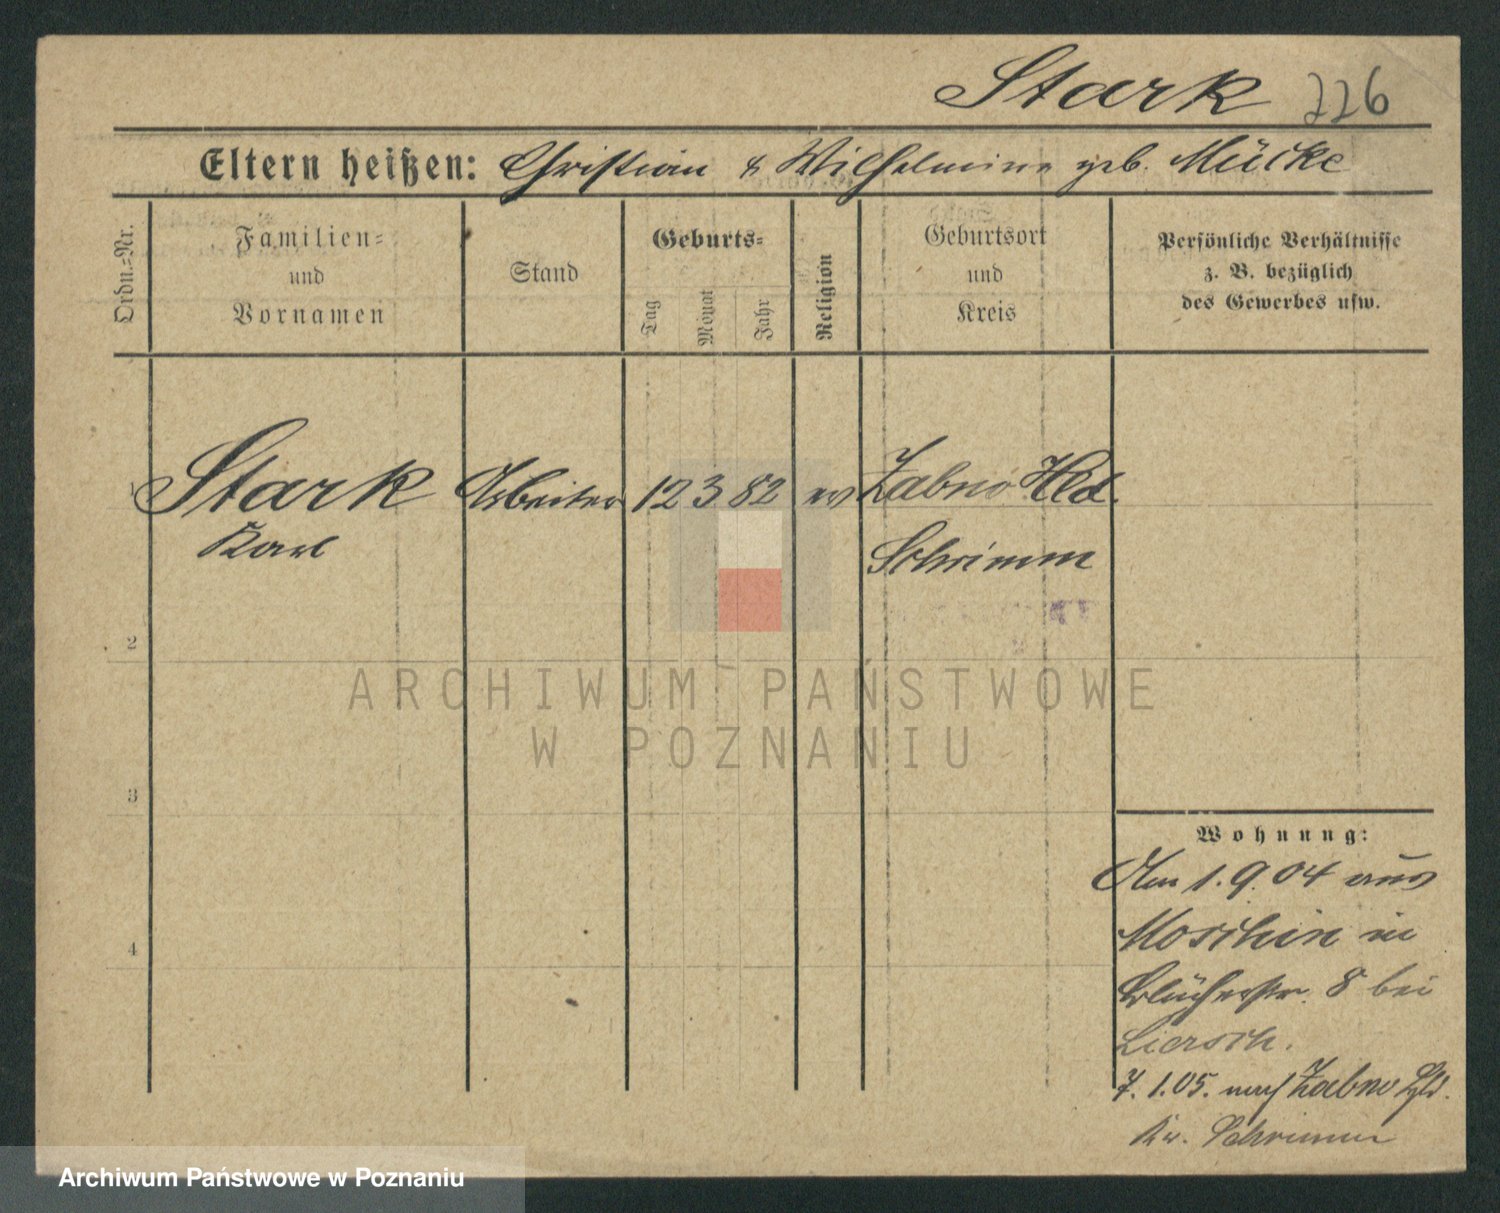 Stark 226
Eltern heißen: Christian & Wilhelmine geb. Mücke
Ordn.=Nr.
Familien=
und
Vornamen
Stand
Geburts=
Tag
Monat
Jahr
Religion
Geburtsort
und
Kreis
Persönliche Verhältnisse
z. B. bezüglich
des Gewerbes usw.
1 Stark Arbeiter 12 3 82 ev Zabno Hld.
Karl Schrimm
2
3
4
Wohnung:
Am 1.9.04 aus
Moschin in
Blücherstr. 8 bei
Liersch.
7.1.05. nach Zabno Hld.
Kr. Schrimm
ARCHIWUM PAŃSTWOWE
W POZNANIU
Archiwum Państwowe w Poznaniu